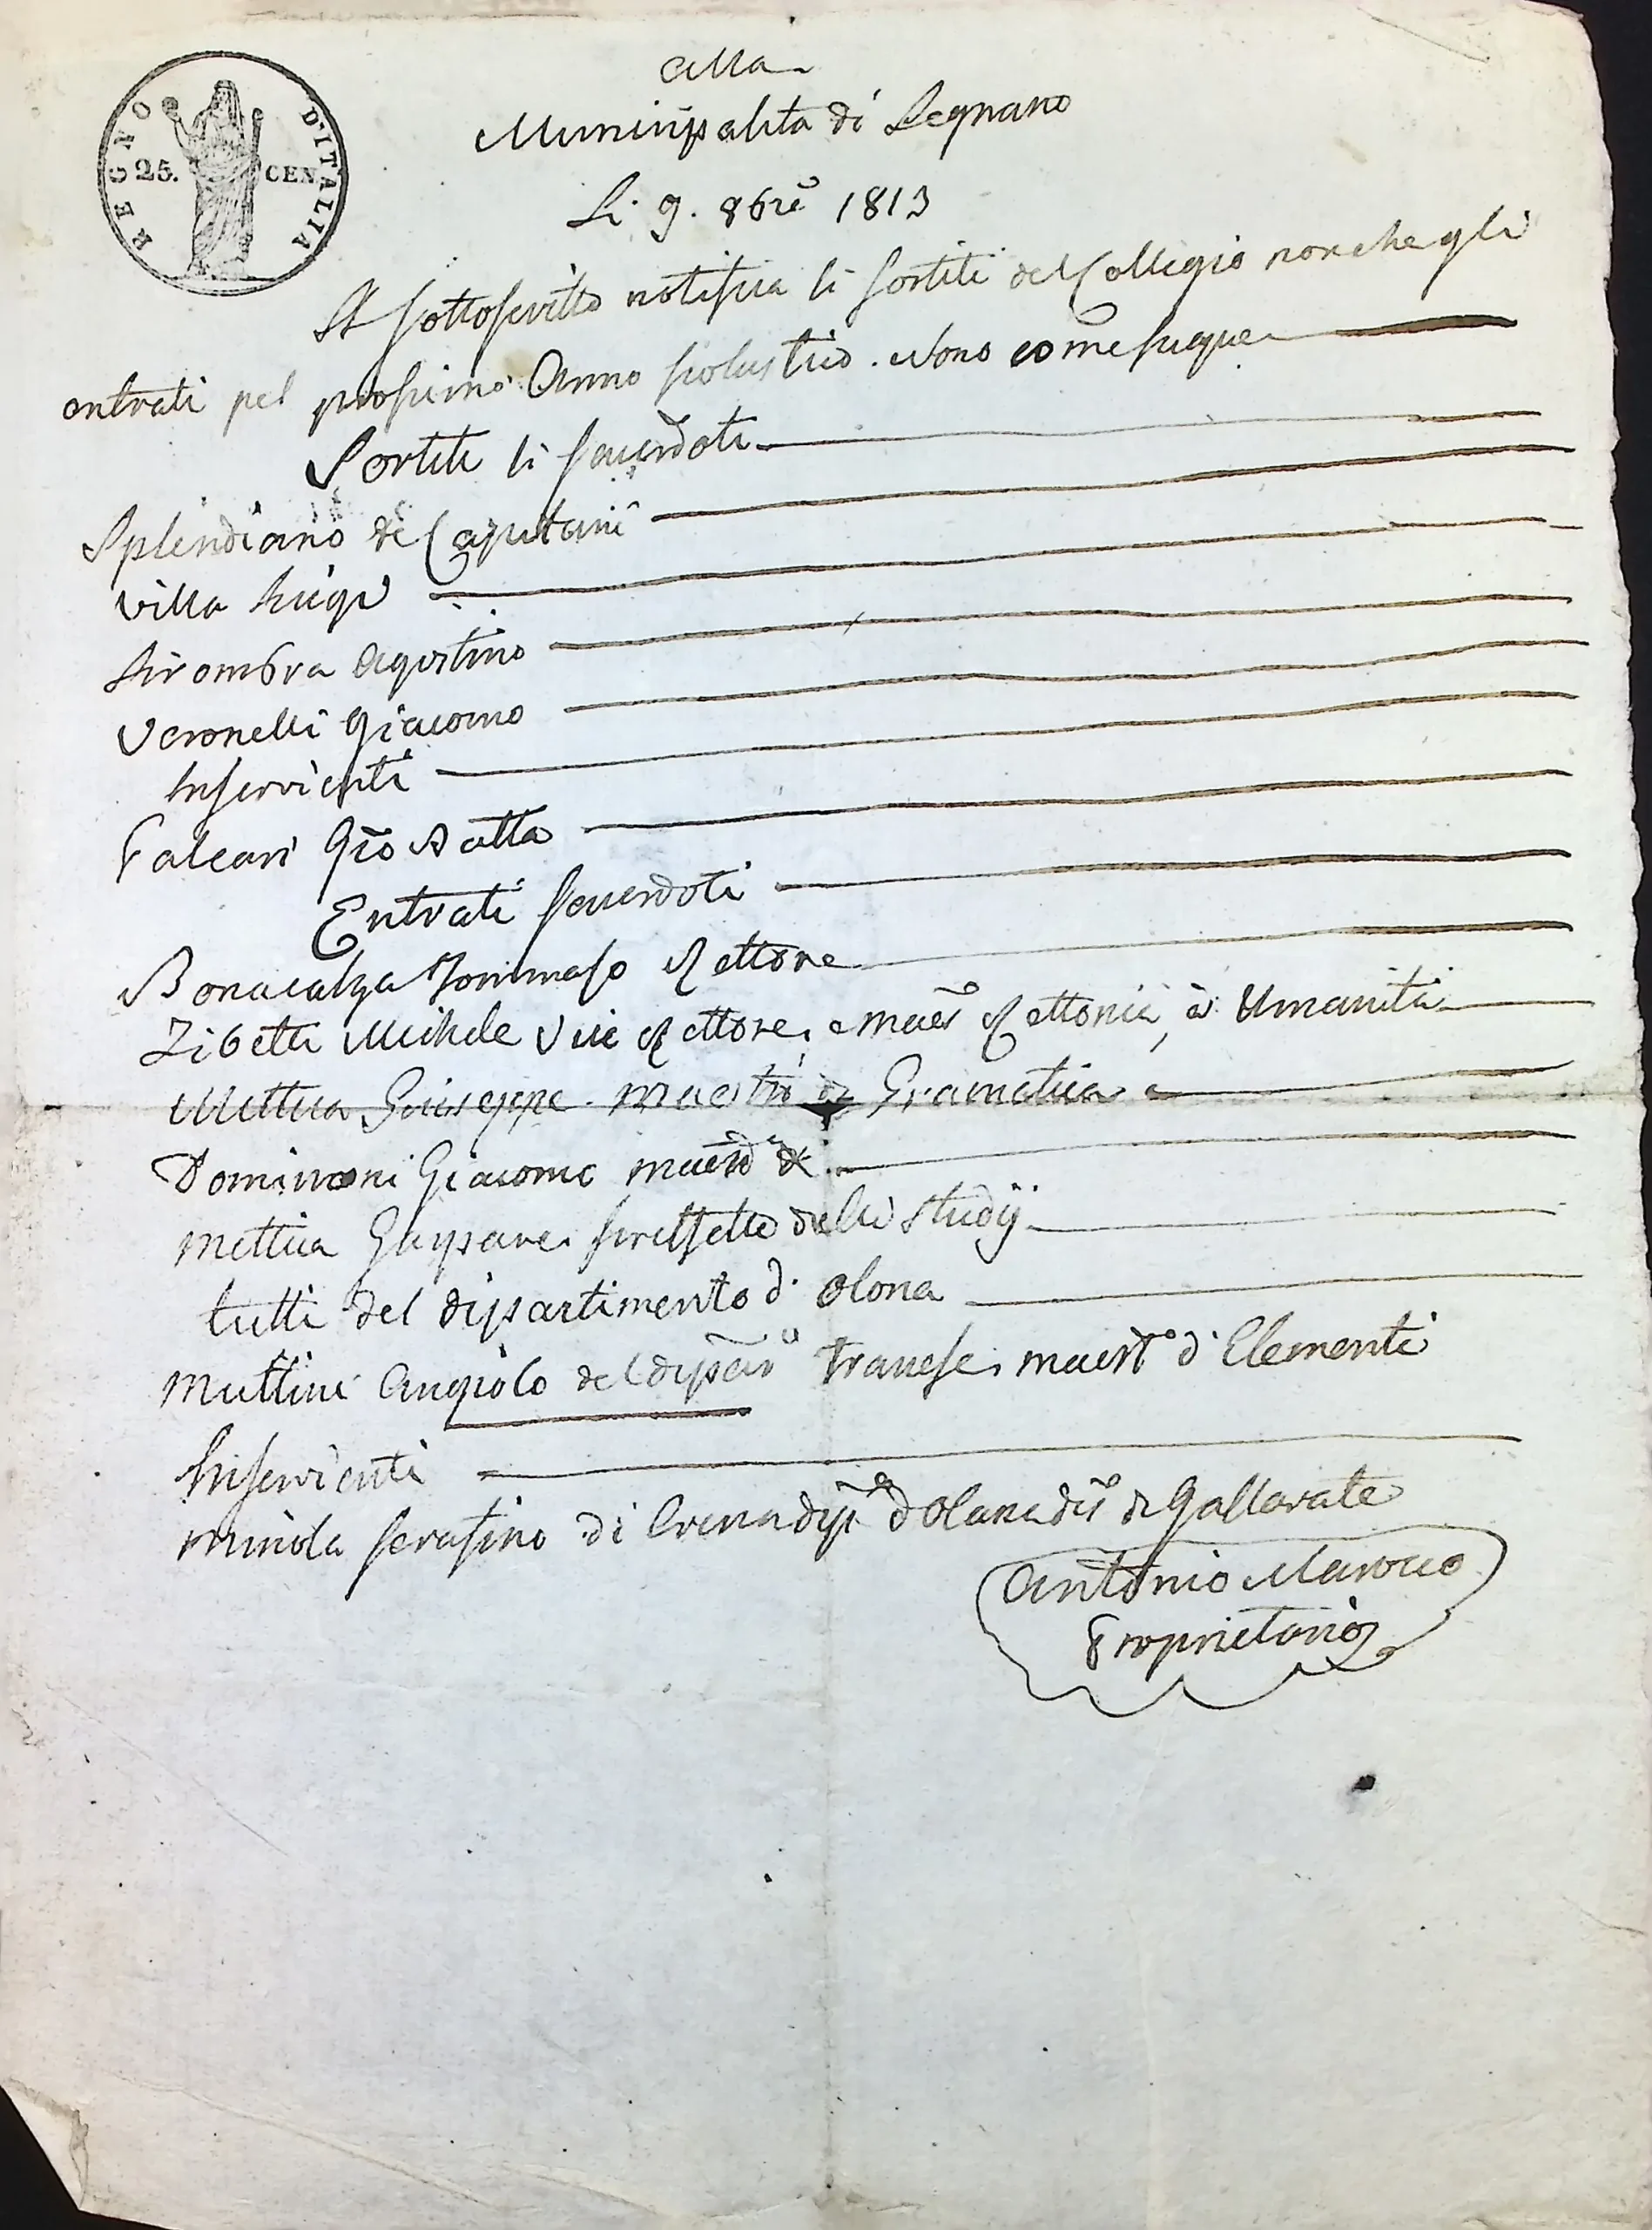 REGNO D'ITALIA
25. CEN.
alla
Municipalita di Legnano
Li 9. 8bre 1813
Il sottoscritto notifica li sortiti del Collegio nonche gli
entrati pel prossimo Anno scolastico. sono come segue
Sortiti li sacerdoti
Splendiano de Capitani
Villa Luigi
Sirombra Agostino
Veronelli Giacomo
Inservienti
Paleari Gio Batta
Entrati sacerdoti
Bonacalza Tommaso Rettore
Zibetti Michele Vice Rettore, e maes° Rettorica, è Umanità
Mettica Giuseppe maestro di Gramatica
Dominioni Giacomo maestro
Mettica Gaspare. delli studij
tutti del dipartimento d'Olona
Muttini Angiolo del dipar° maest° d'Elementi
Inservienti
Minola serafino di Crena dip° d'Olona dis° di Gallarate
Antonio Marocco
Proprietario